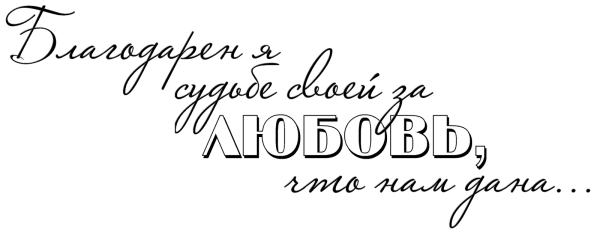 Благодарен я
судьбе своей за
ЛЮБОВЬ,
что нам дана...